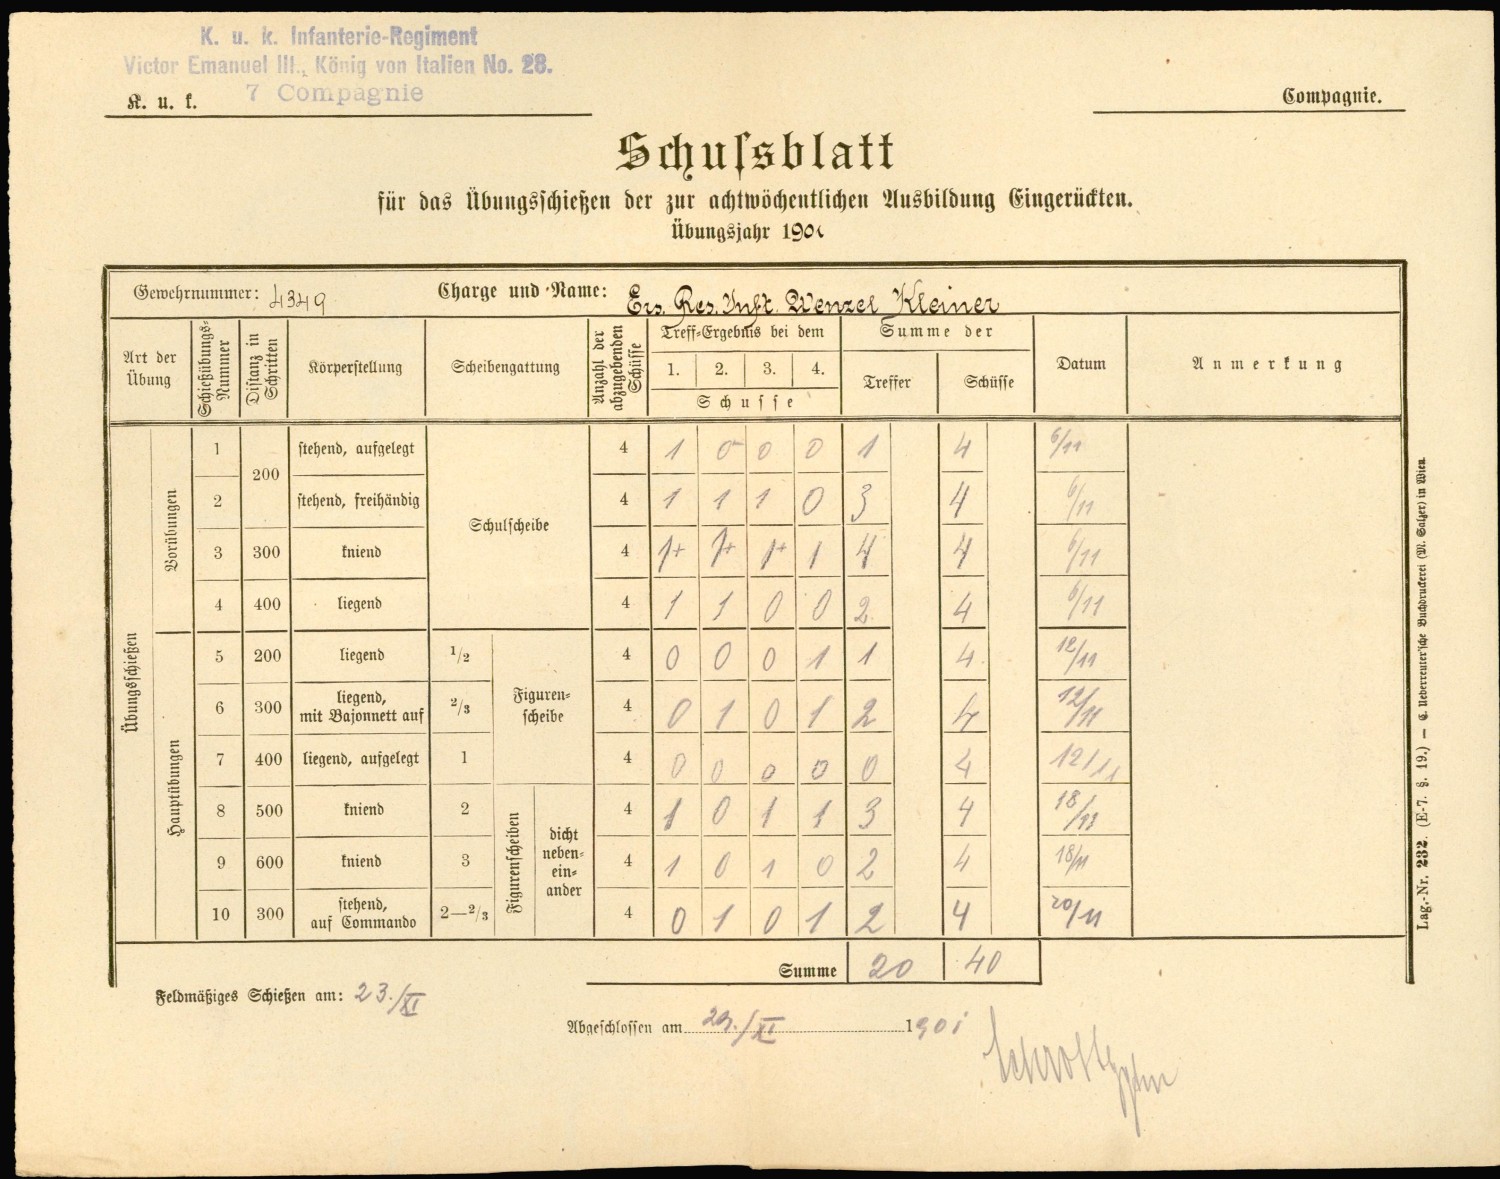 K. u. k. Infanterie-Regiment
Victor Emanuel III., König von Italien No. 28.
K. u. k. 7 Compagnie
Compagnie.
Schussblatt
für das Übungsschießen der zur achtwöchentlichen Ausbildung Eingerückten.
Übungsjahr 1901
Gewehrnummer: 4349 Charge und Name: Ers. Res. Inft. Wenzel Kleiner
Art der Übung Schießübungs-Nummer Distanz in Schritten Körperstellung Scheibengattung Anzahl der abzugebenden Schüsse Treff-Ergebnis bei dem Summe der Datum Anmerkung
1. 2. 3. 4. Treffer Schüsse
Schusse
Übungsschießen
Vorübungen
Schulscheibe
1 200 stehend, aufgelegt 4 1 0 0 0 1 4 6/11
2 stehend, freihändig 4 1 1 1 0 3 4 6/11
3 300 kniend 4 1+ 1+ 1+ 1 4 4 6/11
4 400 liegend 4 1 1 0 0 2 4 6/11
Hauptübungen
Figuren-
scheibe
5 200 liegend 1/2 4 0 0 0 1 1 4 12/11
6 300 liegend, mit Bajonnett auf 2/3 4 0 1 0 1 2 4 12/11
7 400 liegend, aufgelegt 1 4 0 0 0 0 0 4 12/11
Figurenscheiben
dicht
neben-
ein-
ander
8 500 kniend 2 4 1 0 1 1 3 4 18/11
9 600 kniend 3 4 1 0 1 0 2 4 18/11
10 300 stehend, auf Commando 2—2/3 4 0 1 0 1 2 4 20/11
Summe 20 40
Feldmäßiges Schießen am: 23./XI
Abgeschlossen am 29./XI 1901
Lag.-Nr. 232. (E-7. §. 19.) — C. Ueberreuter'sche Buchdruckerei (M. Salzer) in Wien.